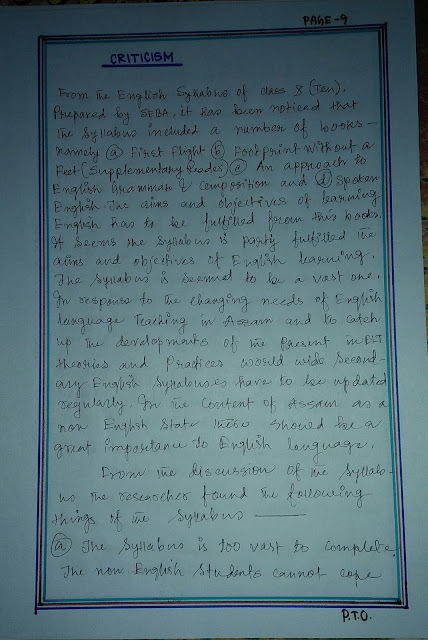 PAGE-9
CRITICISM
From the English Syllabus of class X (Ten).
Prepared by SEBA, it has been noticed that
the Syllabus included a number of books-
namely (a) First Flight (b) Footprint Without a
Feet (Supplementary Reader) (c) An approach to
English Grammar & Composition and (d) Spoken
English. The aims and objectives of learning
English has to be fulfilled from this books.
It seems the syllabus is partly fulfilled the
aims and objectives of English learning.
The Syllabus is seemed to be a vast one.
In response to the changing needs of English
language Teaching in Assam and to catch
up the developments of the present in ELT
theories and Practices world wide Second-
ary English Syllabuses have to be updated
regularly. In the Content of Assam as a
non English State there should be a
great importance to English language.
From the discussion of the Syllab-
us the researcher found the following
things of the Syllabus —
(a) The Syllabus is too vast to complete.
The non English Students cannot cope
P.T.O.